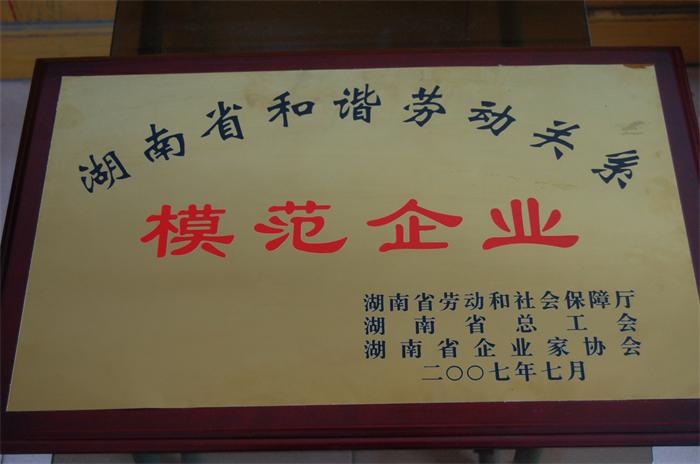 湖南省和谐劳动关系
模范企业
湖南省劳动和社会保障厅
湖南省总工会
湖南省企业家协会
二〇〇七年七月